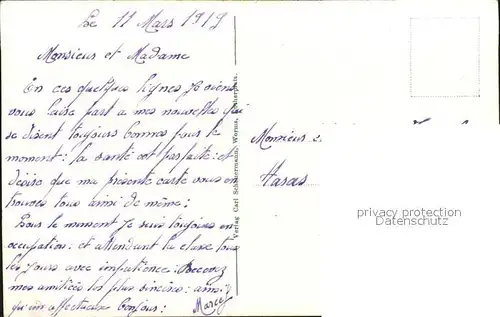 Le 11 Mars 1919
Monsieur et Madame
En ces quelques lignes Je viens
vous faire part a mes nouvelles qui
se disent toujours bonnes pour le
moment : la santé est parfaite : et
désire que ma présente carte vous en
trouves tous ainsi de même ;
Pour le moment Je suis toujours en
occupation : et attendant la classe tous
les Jours avec impatience : Recevez
mes amitiés les plus sincères : ainsi
qu'un affectueux bonjour :
Marcel
Verlag Carl Worms,
Monsieur
Haras
privacy protection
Datenschutz